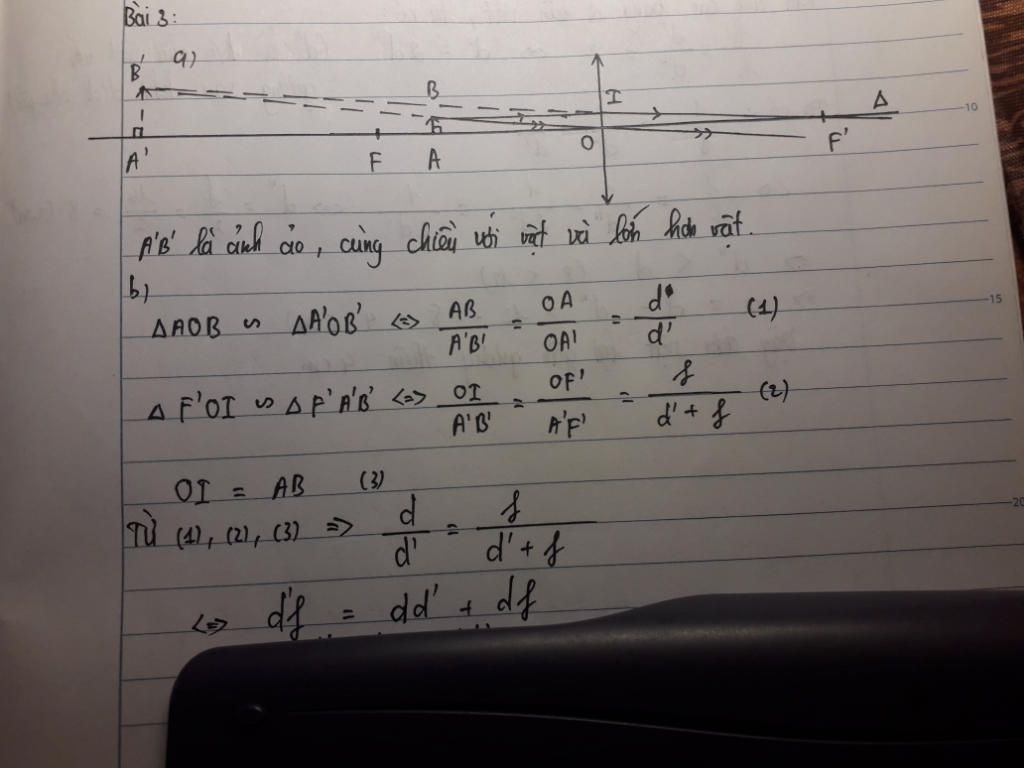 Bài 3:
a)
B' B I Δ
A' F A O F'
A'B' là ảnh ảo, cùng chiều với vật và lớn hơn vật.
b)
ΔAOB ∽ ΔA'OB' <=> AB/A'B' = OA/OA' = d/d' (1)
Δ F'OI ∽ Δ F'A'B' <=> OI/A'B' = OF'/A'F' = f/(d' + f) (2)
OI = AB (3)
Từ (1), (2), (3) => d/d' = f/(d' + f)
<=> d'f = dd' + df
10
15
20